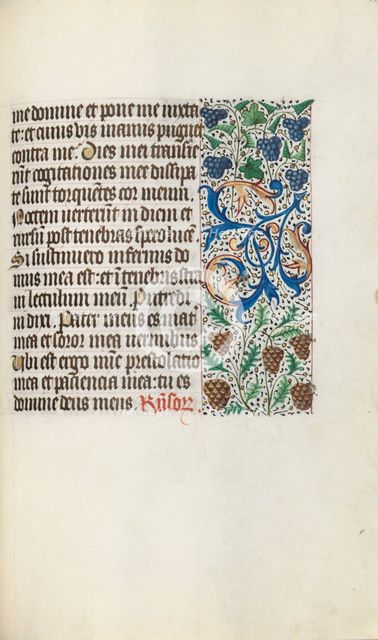 me domine et pone me iuxta
te: et cuiusvis manus pugnet
contra me. Dies mei transie
runt cogitationes mee dissipa
te sunt torquentes cor meum.
Noctem verterunt in diem et
rursum post tenebras spero lucē
Si sustinuero infernus do
mus mea est: et in tenebris stra
vi lectulum meū. Putredi
ni dixi. Pater meus es mat
mea et soror mea vermibus
Ubi est ergo nūc prestolatio
mea et paciencia mea: tu es
domine deus meus.